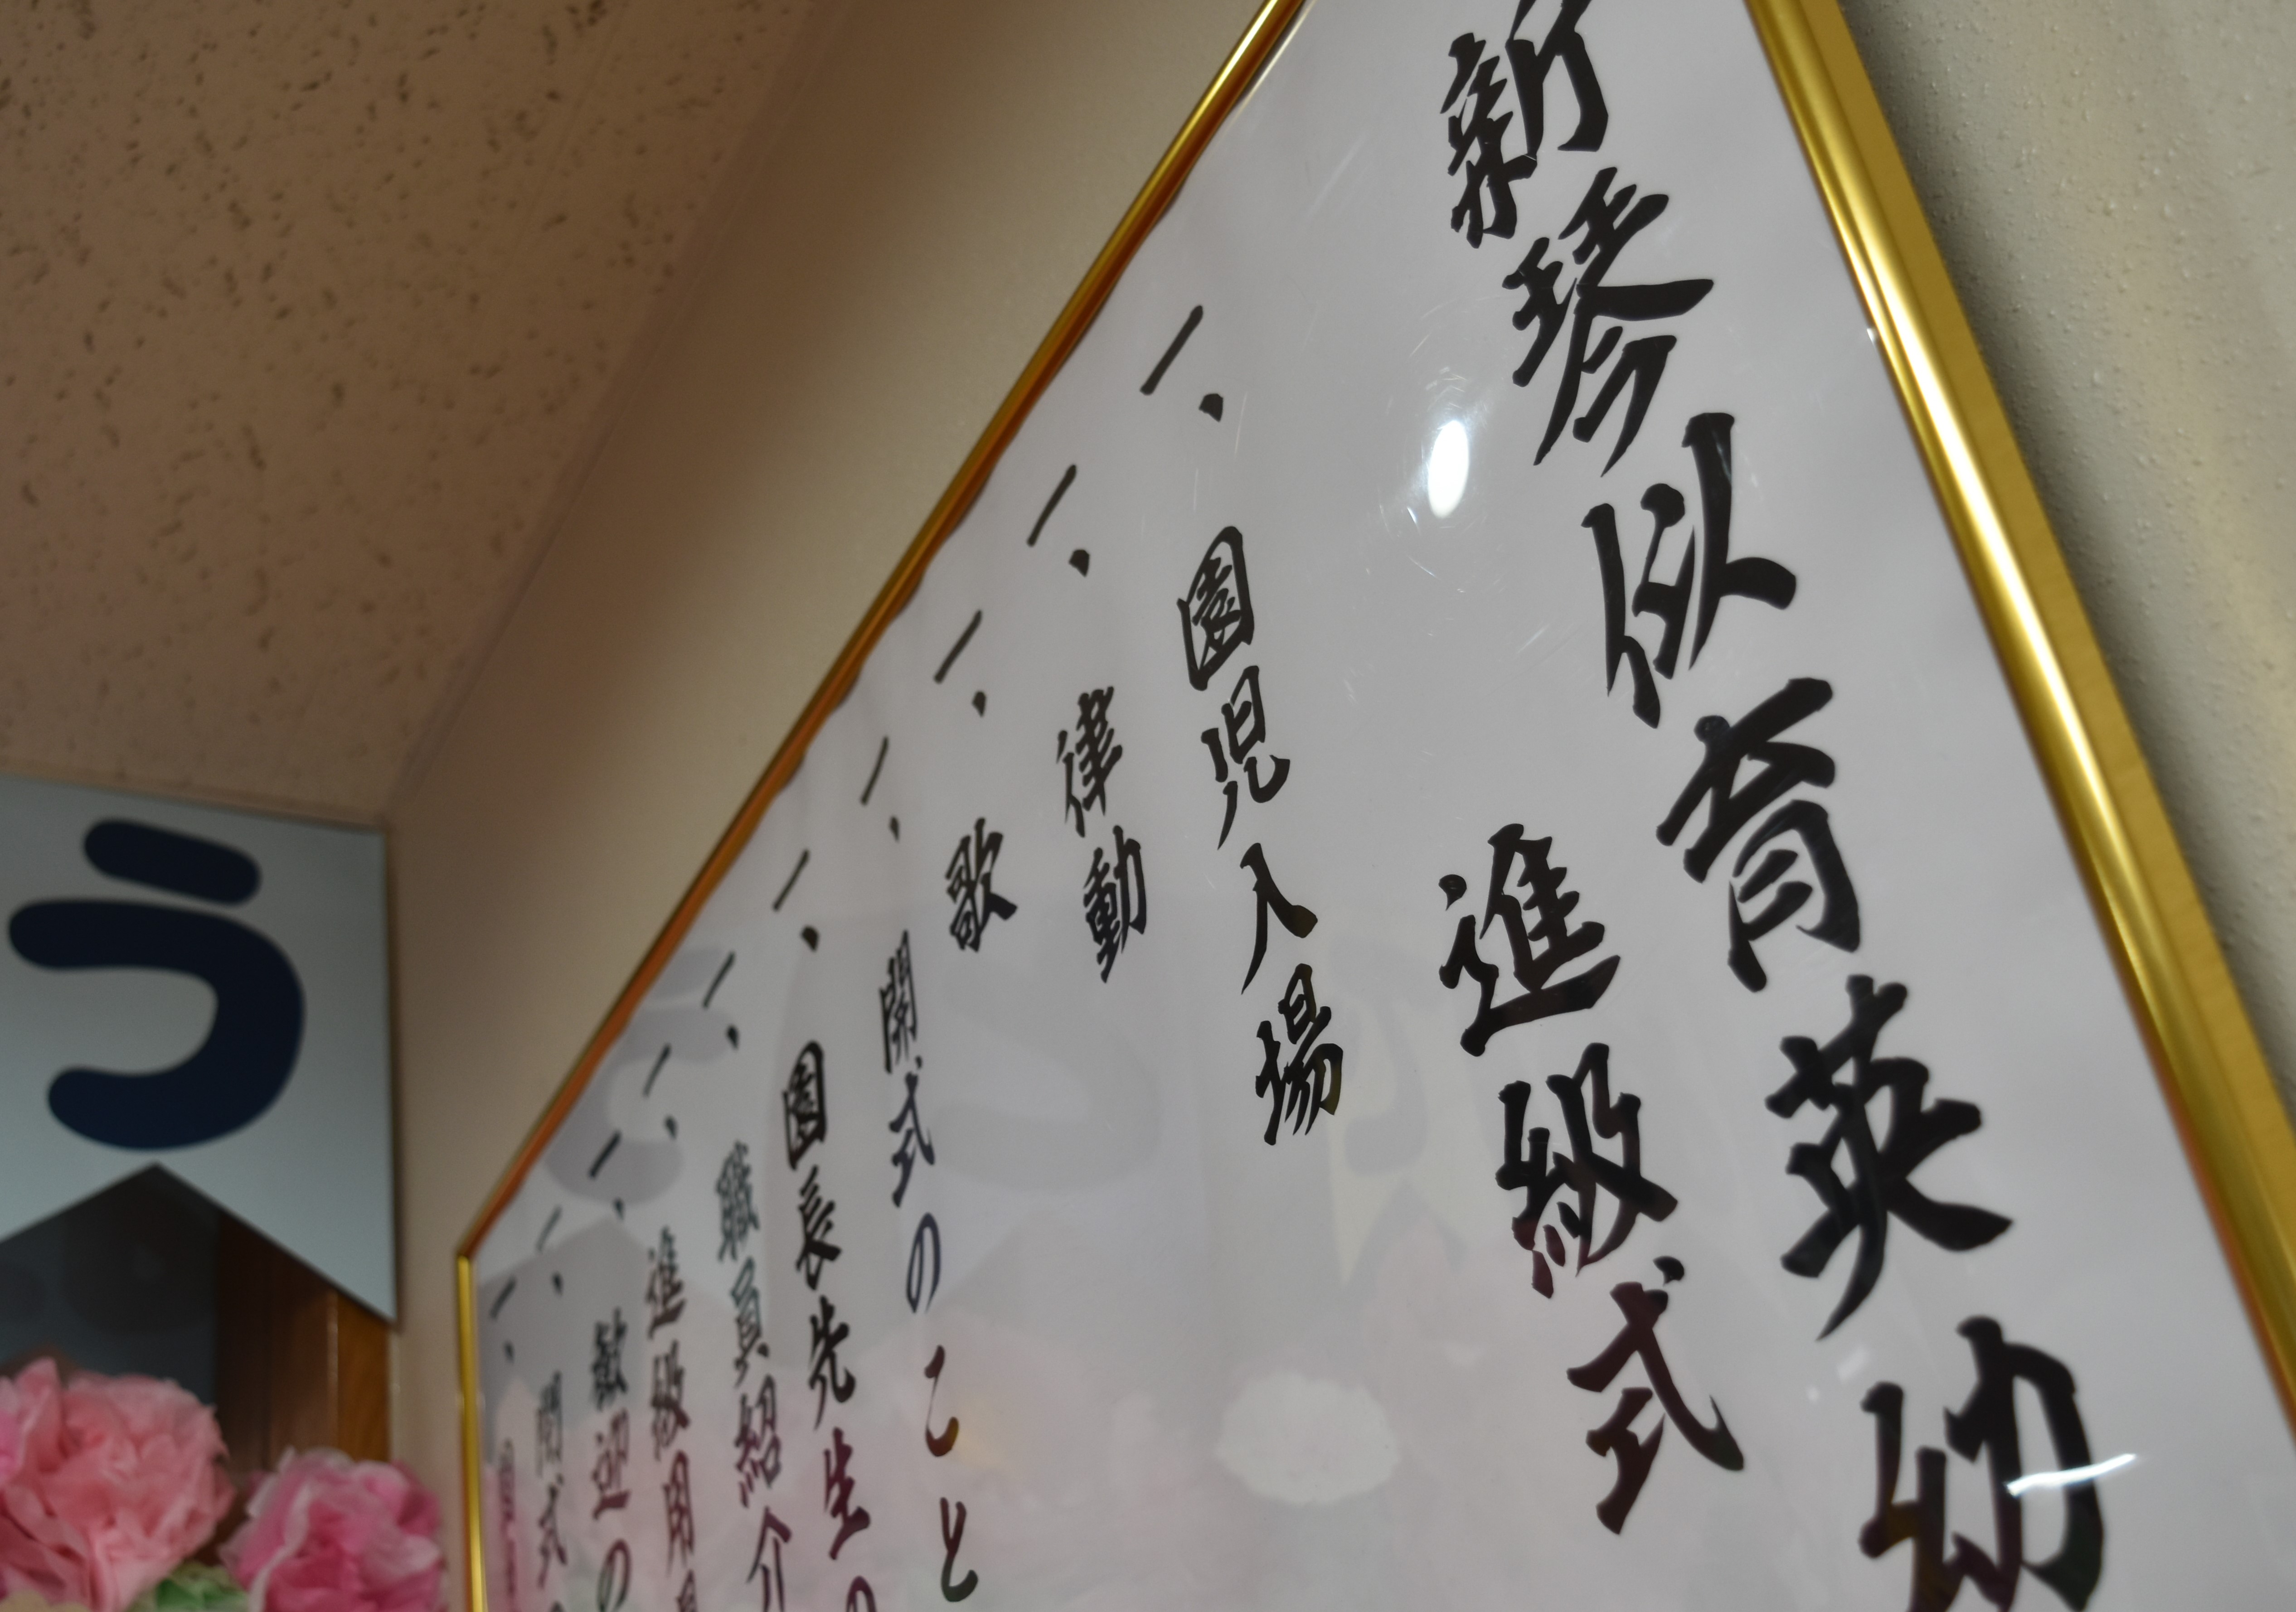 新琴似育英幼
進級式
一、園児入場
一、律動
一、歌
一、開式のこと
一、園長先生の
一、職員紹介
一、進級用
一、歓迎の
一、閉式
一、
う